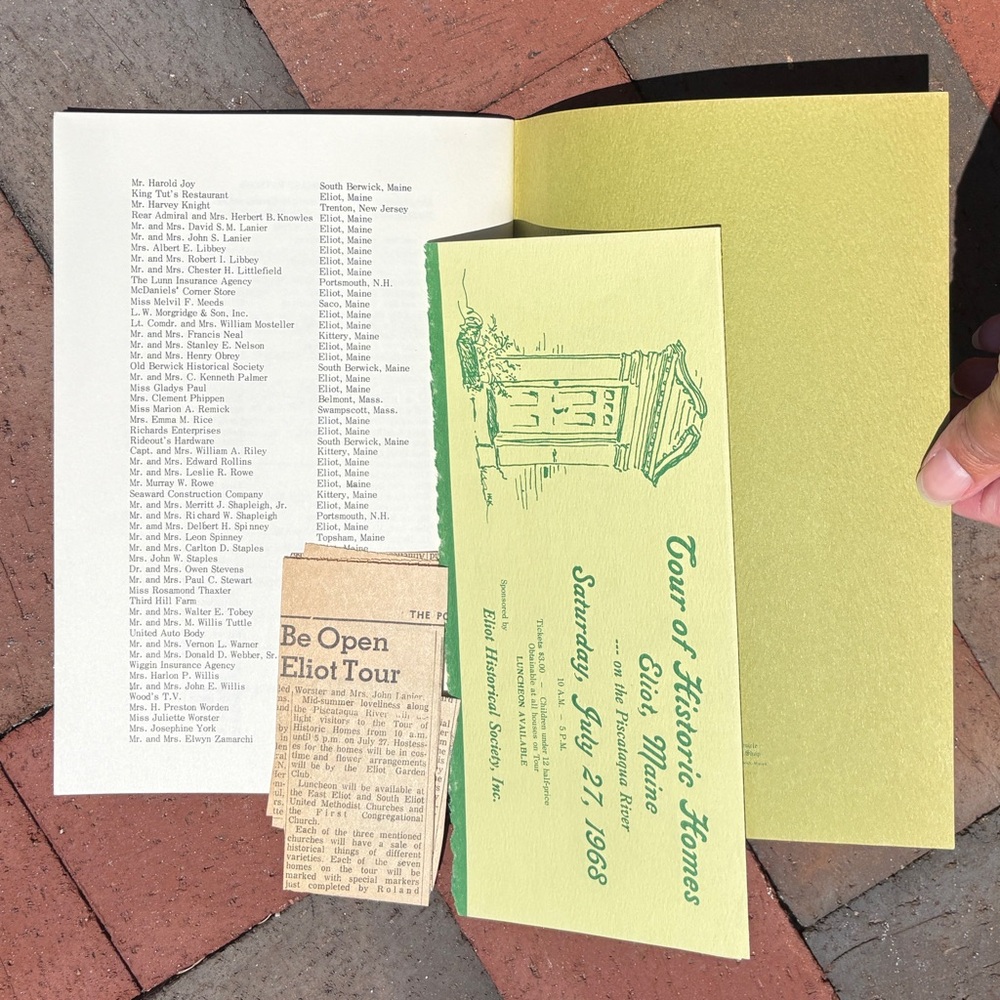 Mr. Harold Joy
King Tut's Restaurant
Mr. Harvey Knight
Rear Admiral and Mrs. Herbert B. Knowles
Mr. and Mrs. David S. M. Lanier
Mr. and Mrs. John S. Lanier
Mrs. Albert E. Libbey
Mr. and Mrs. Robert I. Libbey
Mr. and Mrs. Chester H. Littlefield
The Lunn Insurance Agency
McDaniels' Corner Store
Miss Melvil F. Meeds
L. W. Morgridge & Son, Inc.
Lt. Comdr. and Mrs. William Mosteller
Mr. and Mrs. Francis Neal
Mr. and Mrs. Stanley E. Nelson
Mr. and Mrs. Henry Obrey
Old Berwick Historical Society
Mr. and Mrs. C. Kenneth Palmer
Miss Gladys Paul
Mrs. Clement Phippen
Miss Marion A. Remick
Mrs. Emma M. Rice
Richards Enterprises
Rideout's Hardware
Capt. and Mrs. William A. Riley
Mr. and Mrs. Edward Rollins
Mr. and Mrs. Leslie R. Rowe
Mr. Murray W. Rowe
Seaward Construction Company
Mr. and Mrs. Merritt J. Shapleigh, Jr.
Mr. and Mrs. Richard W. Shapleigh
Mr. and Mrs. Delbert H. Spinney
Mr. and Mrs. Leon Spinney
Mr. and Mrs. Carlton D. Staples
Mrs. John W. Staples
Dr. and Mrs. Owen Stevens
Mr. and Mrs. Paul C. Stewart
Miss Rosamond Thaxter
Third Hill Farm
Mr. and Mrs. Walter E. Tobey
Mr. and Mrs. M. Willis Tuttle
United Auto Body
Mr. and Mrs. Vernon L. Warner
Mr. and Mrs. Donald D. Webber, Sr.
Wiggin Insurance Agency
Mrs. Harlon P. Willis
Mr. and Mrs. John E. Willis
Wood's T.V.
Mrs. H. Preston Worden
Miss Juliette Worster
Mrs. Josephine York
Mr. and Mrs. Elwyn Zamarchi
South Berwick, Maine
Eliot, Maine
Trenton, New Jersey
Eliot, Maine
Eliot, Maine
Eliot, Maine
Eliot, Maine
Eliot, Maine
Eliot, Maine
Portsmouth, N.H.
Eliot, Maine
Saco, Maine
Eliot, Maine
Eliot, Maine
Kittery, Maine
Eliot, Maine
Eliot, Maine
South Berwick, Maine
Eliot, Maine
Eliot, Maine
Belmont, Mass.
Swampscott, Mass.
Eliot, Maine
Eliot, Maine
South Berwick, Maine
Kittery, Maine
Eliot, Maine
Eliot, Maine
Eliot, Maine
Kittery, Maine
Eliot, Maine
Portsmouth, N.H.
Eliot, Maine
Topsham, Maine
Maine
THE PO
Be Open
Eliot Tour
Worster and Mrs. John Lanier.
Mid-summer loveliness along
the Piscataqua River will
light visitors to the Tour of
Historic Homes from 10 a.m.
until 5 p.m. on July 27. Hostess-
es for the homes will be in cos-
tume and flower arrangements
will be by the Eliot Garden
Club.
Luncheon will be available at
the East Eliot and South Eliot
United Methodist Churches and
the First Congregational
Church.
Each of the three mentioned
churches will have a sale of
historical things of different
varieties. Each of the seven
homes on the tour will be
marked with special markers
just completed by Roland
Tour of Historic Homes
Eliot, Maine
--- on the Piscataqua River
Saturday, July 27, 1968
10 A.M. - 5 P.M.
Tickets $3.00 - Children under 12 half-price
Obtainable at all houses on Tour
LUNCHEON AVAILABLE
Sponsored by
Eliot Historical Society, Inc.